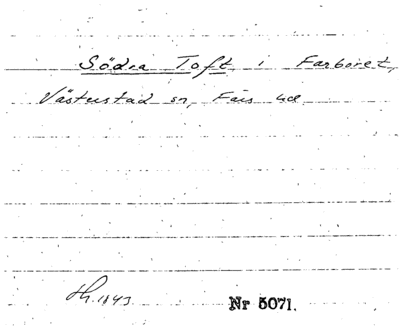 Södra Toft i Farboret,
Västerstad sn, Färs hd
th. 1843
Nr 5071.